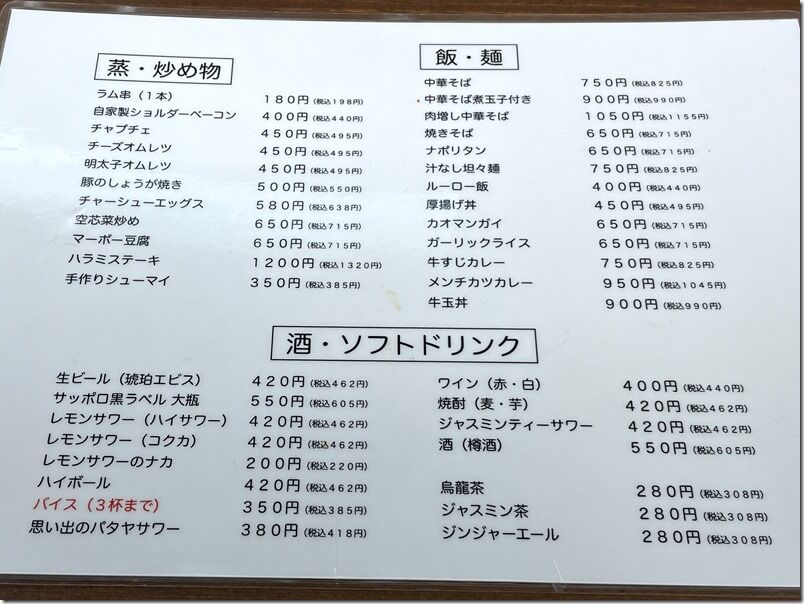 蒸・炒め物
ラム串（1本） 180円（税込198円）
自家製ショルダーベーコン 400円（税込440円）
チャプチェ 450円（税込495円）
チーズオムレツ 450円（税込495円）
明太子オムレツ 450円（税込495円）
豚のしょうが焼き 500円（税込550円）
チャーシューエッグス 580円（税込638円）
空芯菜炒め 650円（税込715円）
マーボー豆腐 650円（税込715円）
ハラミステーキ 1200円（税込1320円）
手作りシューマイ 350円（税込385円）
飯・麺
中華そば 750円（税込825円）
中華そば煮玉子付き 900円（税込990円）
肉増し中華そば 1050円（税込1155円）
焼きそば 650円（税込715円）
ナポリタン 650円（税込715円）
汁なし坦々麺 750円（税込825円）
ルーロー飯 400円（税込440円）
厚揚げ丼 450円（税込495円）
カオマンガイ 650円（税込715円）
ガーリックライス 650円（税込715円）
牛すじカレー 750円（税込825円）
メンチカツカレー 950円（税込1045円）
牛玉丼 900円（税込990円）
酒・ソフトドリンク
生ビール（琥珀エビス） 420円（税込462円）
サッポロ黒ラベル 大瓶 550円（税込605円）
レモンサワー（ハイサワー） 420円（税込462円）
レモンサワー（コクカ） 420円（税込462円）
レモンサワーのナカ 200円（税込220円）
ハイボール 420円（税込462円）
バイス（3杯まで） 350円（税込385円）
思い出のパタヤサワー 380円（税込418円）
ワイン（赤・白） 400円（税込440円）
焼酎（麦・芋） 420円（税込462円）
ジャスミンティーサワー 420円（税込462円）
酒（樽酒） 550円（税込605円）
烏龍茶 280円（税込308円）
ジャスミン茶 280円（税込308円）
ジンジャーエール 280円（税込308円）